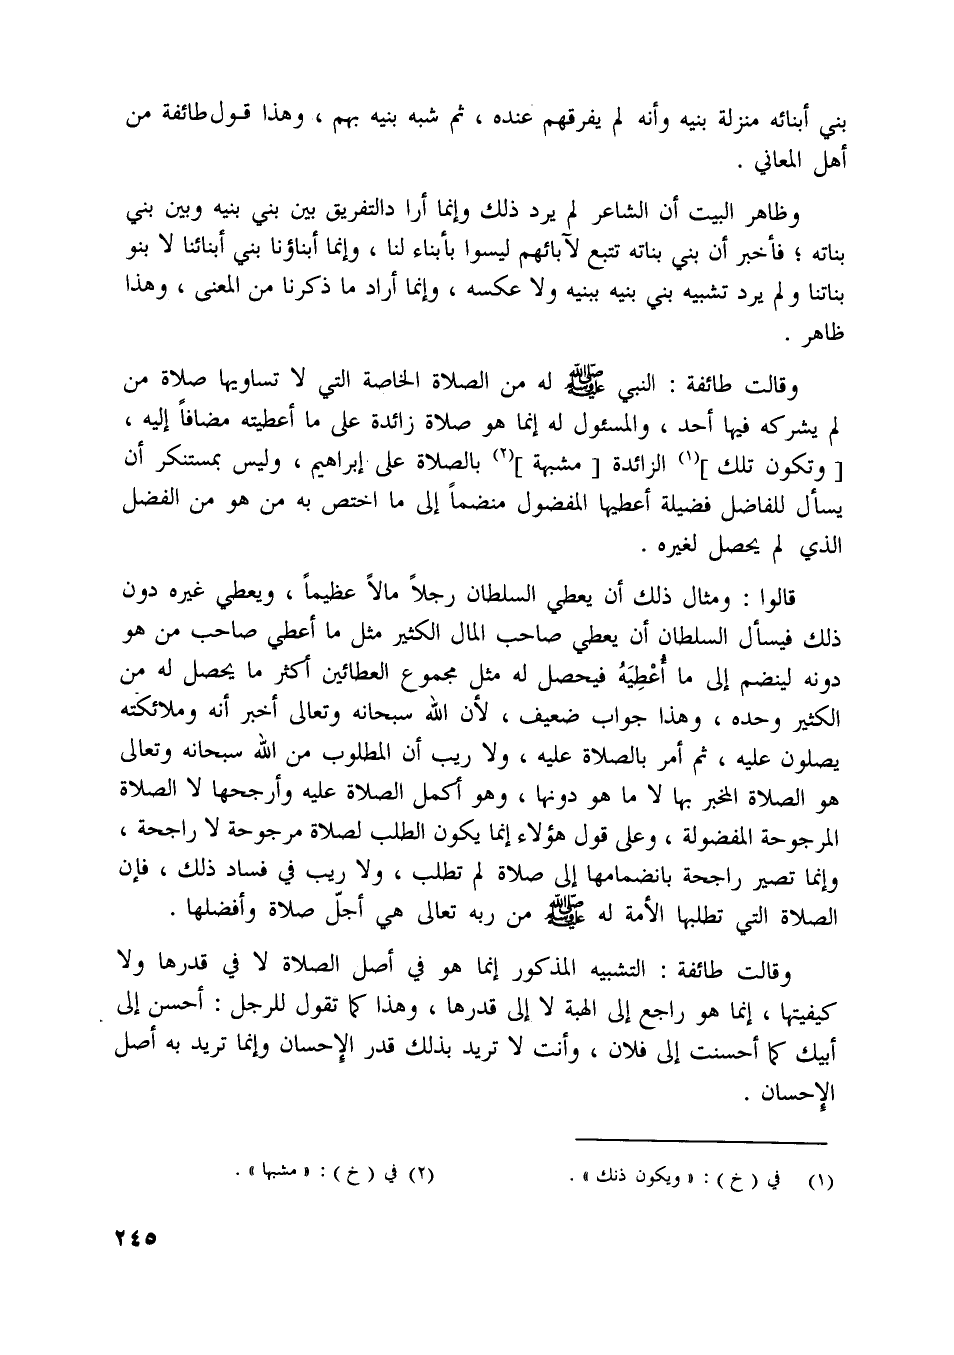 بني أبنائه منزلة بنيه وأنه لم يفرقهم عنده ، ثم شبه بنيه بهم ، وهذا قول طائفة من
أهل المعاني .
وظاهر البيت أن الشاعر لم يرد ذلك وإنما أرا دالتفريق بين بني بنيه وبين بني
بناته ؛ فأخبر أن بني بناته تتبع لآبائهم ليسوا بأبناء لنا ، وإنما أبناؤنا بني أبنائنا لا بنو
بناتنا ولم يرد تشبيه بني بنيه ببنيه ولا عكسه ، وإنما أراد ما ذكرنا من المعنى ، وهذا
ظاهر .
وقالت طائفة : النبي ﷺ له من الصلاة الخاصة التي لا تساويها صلاة من
لم يشركه فيها أحد ، والمسئول له إنما هو صلاة زائدة على ما أعطيته مضافاً إليه ،
[ وتكون تلك ](١) الزائدة [ مشبهة ](٢) بالصلاة على إبراهيم ، وليس بمستنكر أن
يسأل للفاضل فضيلة أعطيها المفضول منضماً إلى ما اختص به من هو من الفضل
الذي لم يحصل لغيره .
قالوا : ومثال ذلك أن يعطي السلطان رجلاً مالاً عظيماً ، ويعطي غيره دون
ذلك فيسأل السلطان أن يعطي صاحب المال الكثير مثل ما أعطي صاحب من هو
دونه لينضم إلى ما أُعْطِيَهُ فيحصل له مثل مجموع العطائين أكثر ما يحصل له من
الكثير وحده ، وهذا جواب ضعيف ، لأن الله سبحانه وتعالى أخبر أنه وملائكته
يصلون عليه ، ثم أمر بالصلاة عليه ، ولا ريب أن المطلوب من الله سبحانه وتعالى
هو الصلاة المخبر بها لا ما هو دونها ، وهو أكمل الصلاة عليه وأرجحها لا الصلاة
المرجوحة المفضولة ، وعلى قول هؤلاء إنما يكون الطلب لصلاة مرجوحة لا راجحة ،
وإنما تصير راجحة بانضمامها إلى صلاة لم تطلب ، ولا ريب في فساد ذلك ، فإن
الصلاة التي تطلبها الأمة له ﷺ من ربه تعالى هي أجلّ صلاة وأفضلها .
وقالت طائفة : التشبيه المذكور إنما هو في أصل الصلاة لا في قدرها ولا
كيفيتها ، إنما هو راجع إلى الهبة لا إلى قدرها ، وهذا كما تقول للرجل : أحسن إلى
أبيك كما أحسنت إلى فلان ، وأنت لا تريد بذلك قدر الإحسان وإنما تريد به أصل
الإحسان .
(١) في ( خ ) : « ويكون ذنك » .
(٢) في ( خ ) : « مشبها » .
٢٤٥